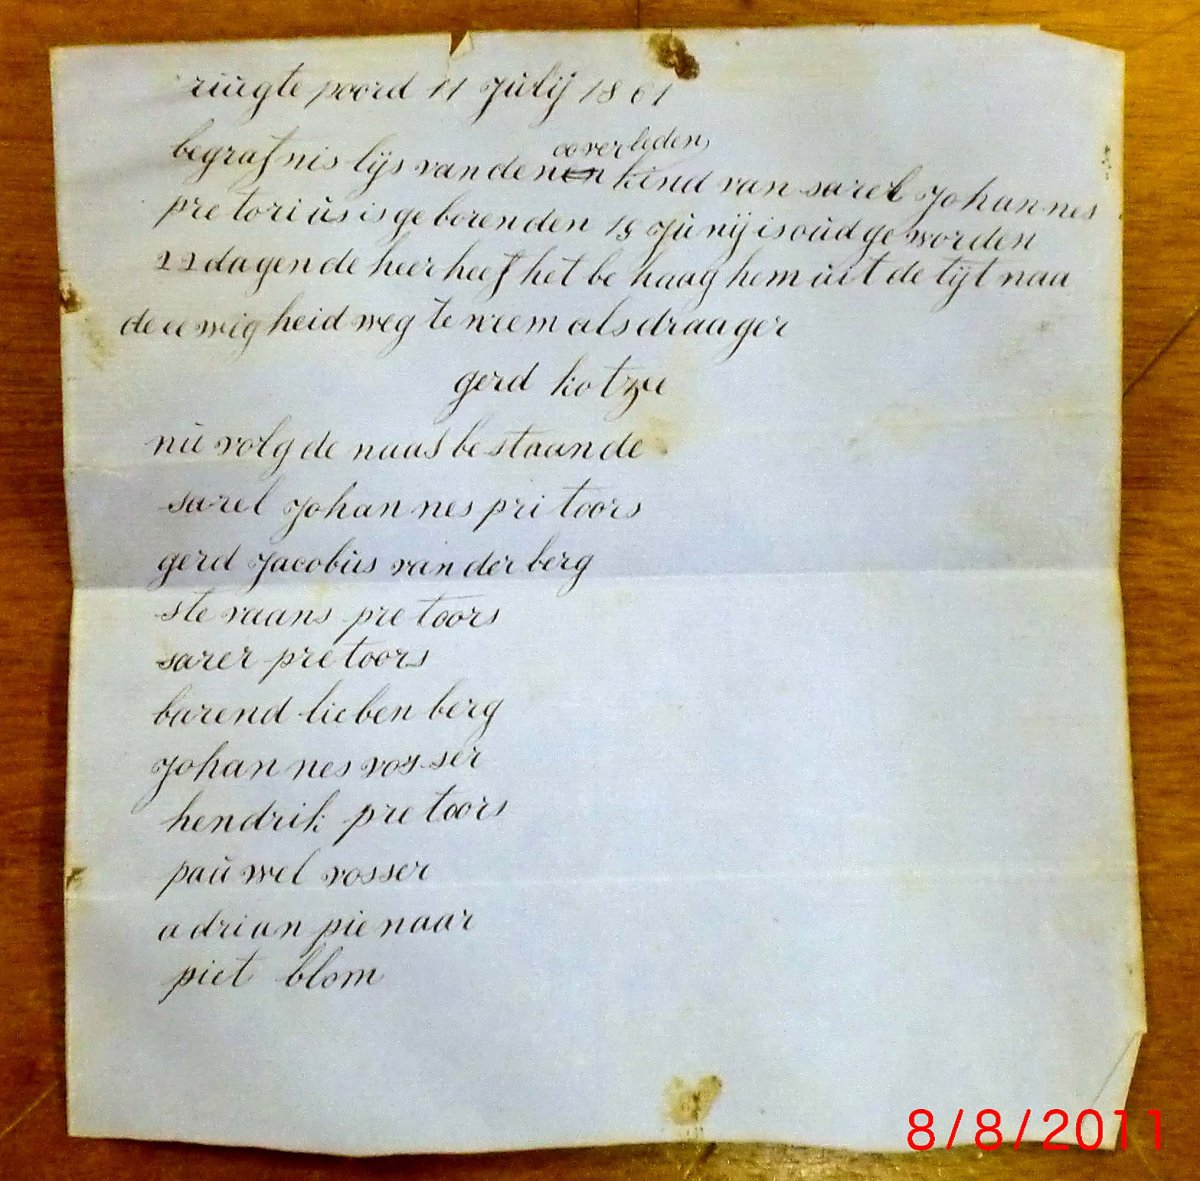 ruugte poord 11 Julij 1861
begrafnis lijs van den ooverleden kind van sarel Johannes
pretorius is geboren den 19 Junij is oud geworden
22 dagen de heer heef het be haag hem uit de tijt naa
de eewigheid weg te neem als draager
gerd kotze
nu volg de naasbestaande
sarel Johannes pritoors
gerd Jacobus van der berg
stevaans pretoors
sarer pretoors
barend liebenberg
Johannes vosser
hendrik pretoors
pauwel vosser
adrian pienaar
piet blom
8/8/2011